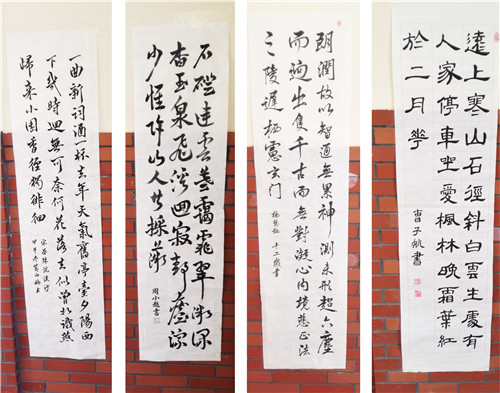 一曲新词酒一杯去年天氣舊亭臺夕陽西
下幾時迴無可奈何花落去似曾相識燕
歸來小園香徑獨徘徊
宋晏殊浣溪沙
石磴連雲暮靄霏翠微深
杳玉泉飛溪迴寂静塵踪
少惟許山人共採薇
朗潤故以智通無累神測未形超六塵
而迥出隻千古而無對凝心内境悲正法
之陵遲栖慮玄門
十二歲書
遠上寒山石徑斜白雲生處有
人家停車坐愛楓林晚霜葉紅
於二月花
曹子航書